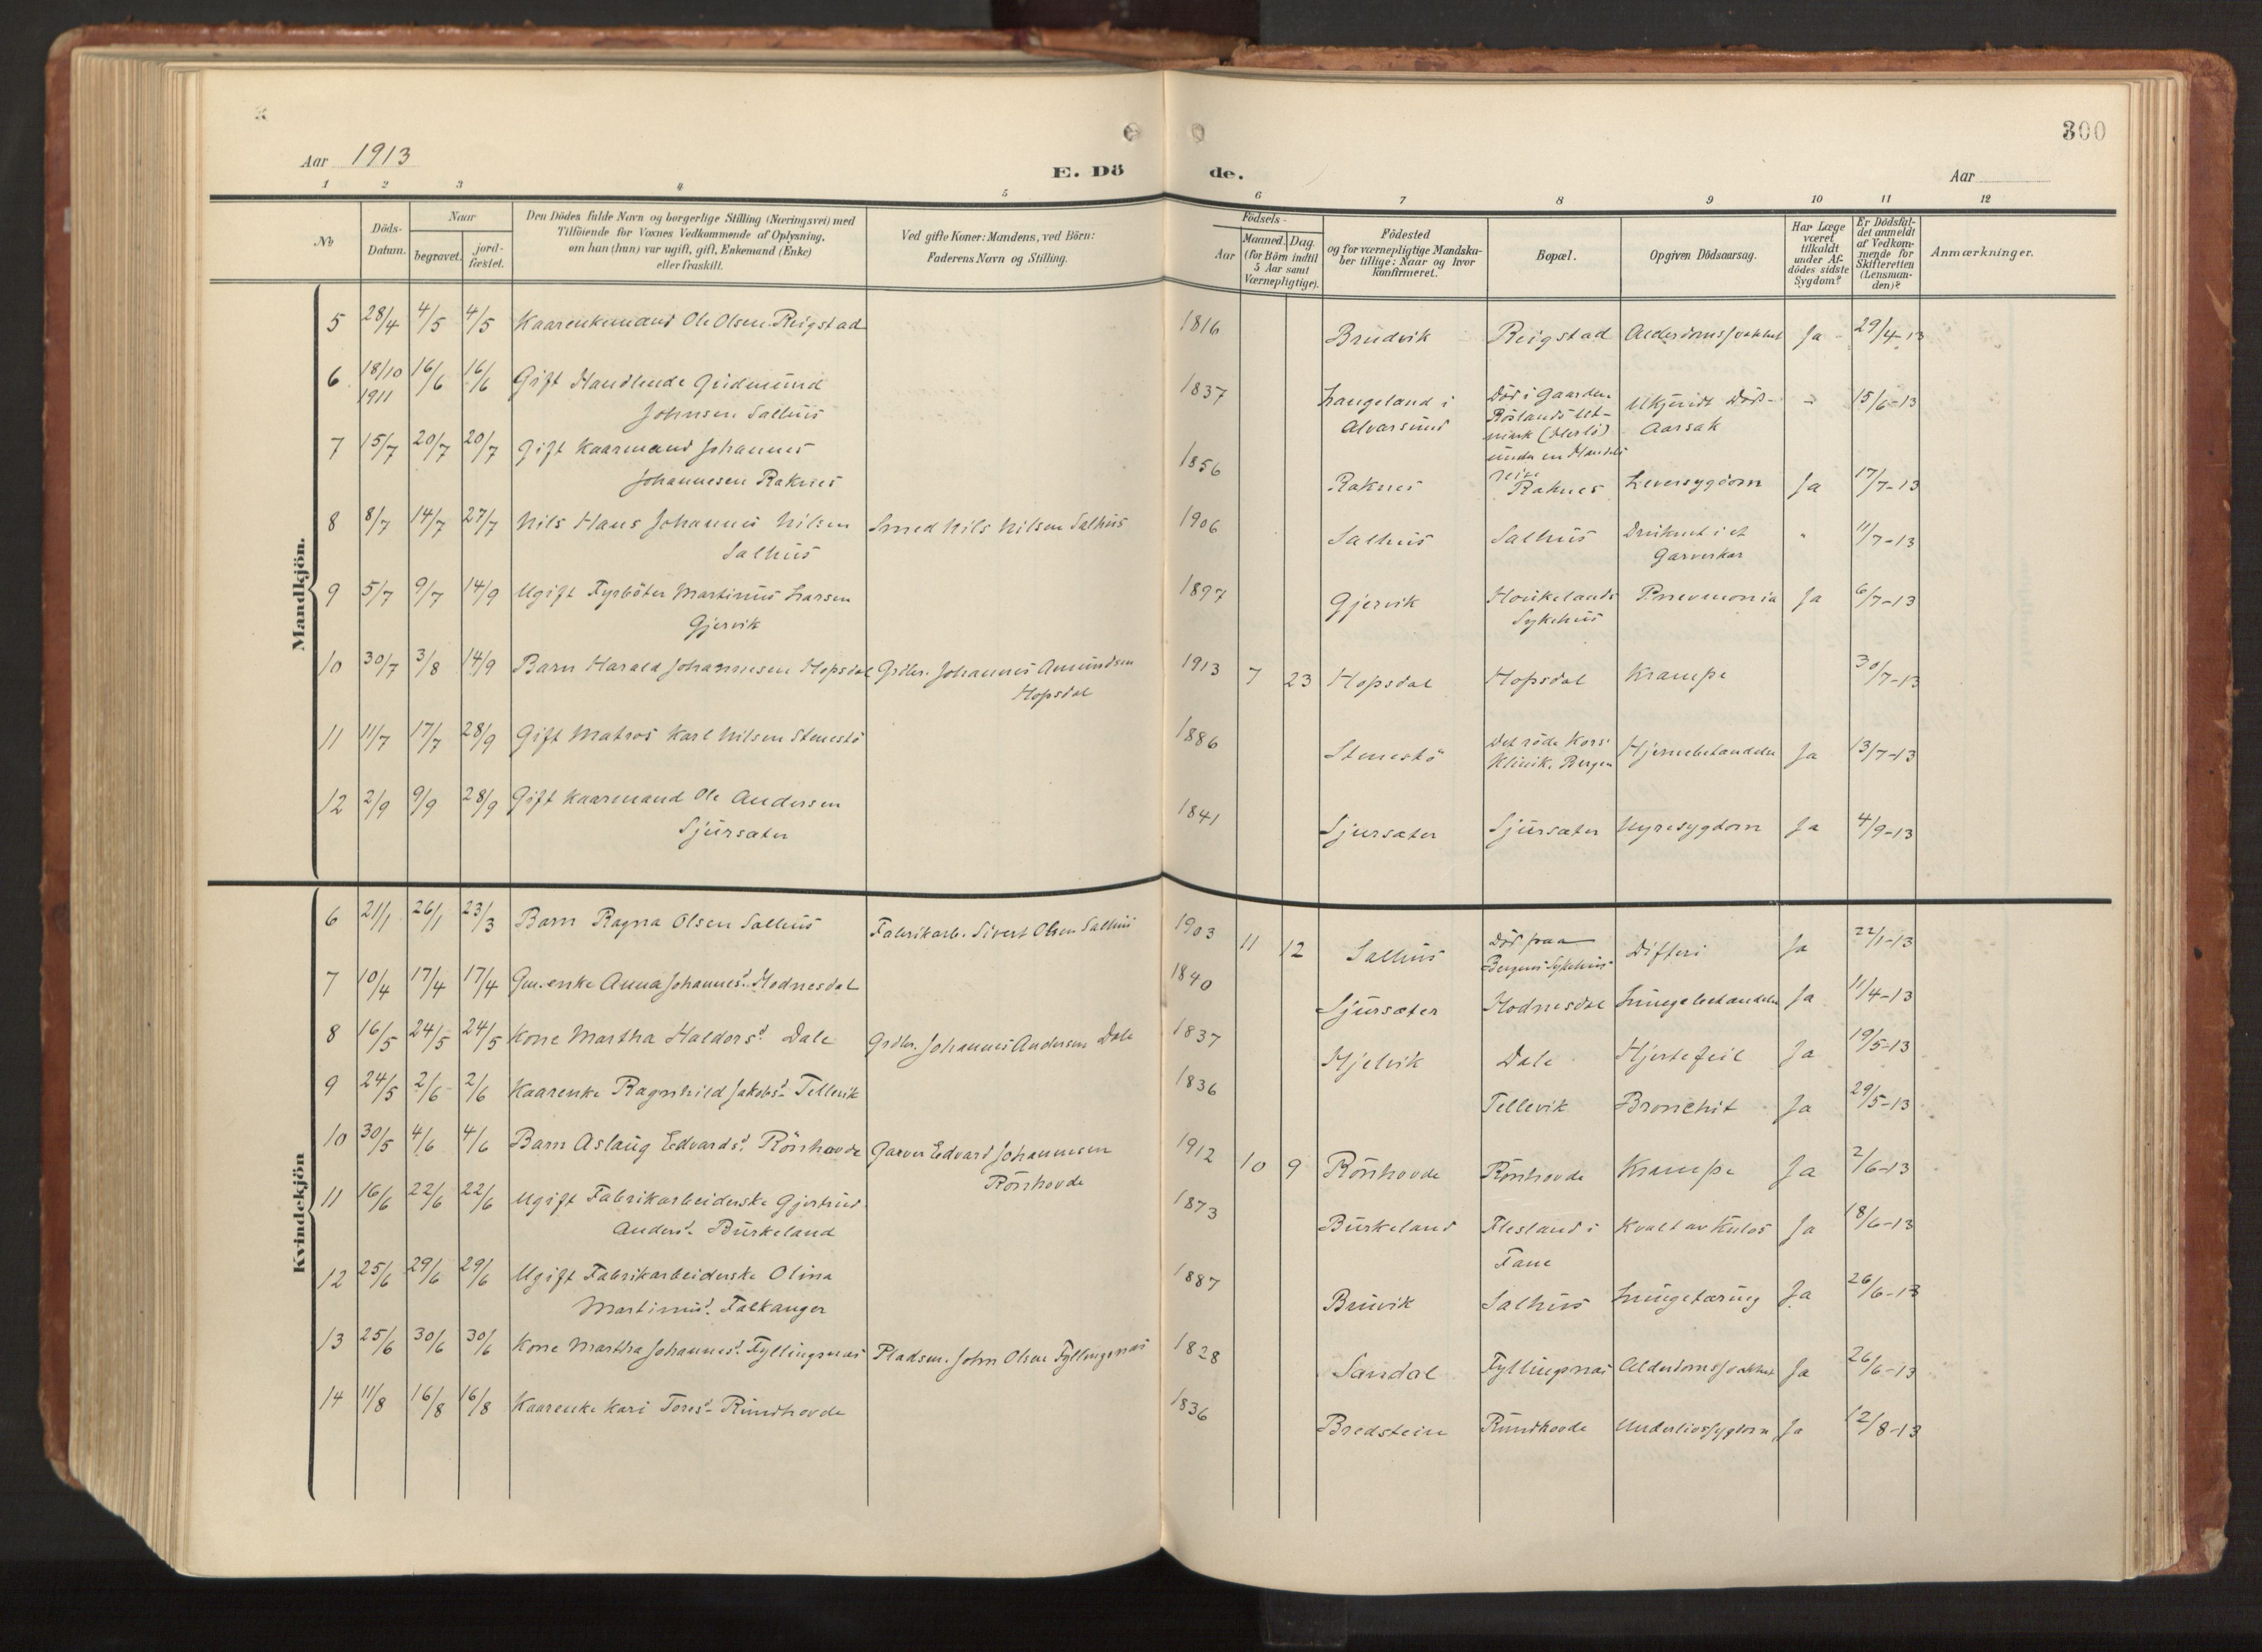 300
Aar 1913
E. Dö
de.
Aar
1 2 3 4 5 6 7 8 9 10 11 12
No
Döds-Datum.
Naar
begravet.
jord-fæstet.
Den Dödes fulde Navn og borgerlige Stilling (Næringsvei) med
Tilföiende for Voxnes Vedkommende af Oplysning,
om han (hun) var ugift, gift, Enkemand (Enke)
eller fraskilt.
Ved gifte Koner: Mandens, ved Börn:
Faderens Navn og Stilling.
Födsels-
Aar
Maaned. Dag.
(for Börn indtil
5 Aar samt
Værnepligtige).
Födested
og for værnepligtige Mandska-
ber tillige: Naar og hvor
konfirmeret.
Bopæl.
Opgiven Dödsaarsag.
Har Læge
været
tilkaldt
under Af-
dödes sidste
Sygdom?
Er Dödsfal-
det anmeldt
af Vedkom-
mende for
Skifteretten
(Lensman-
den)?
Anmærkninger.
Mandkjön.
5 28/4 4/5 4/5 Kaarenkemand Ole Olsen Reigstad 1816 Bruvik Reigstad Alderdomssvakhet Ja 29/4-13
6 18/10 1911 16/6 16/6 Gift Handlende Gudmund
Johnsen Salhus 1837 Langeland i
Alvarsund Död i Gaarden
Röslands Ut-
mark (Herlö)
under en Handels
reise Ukjendt Döds-
Aarsak - 15/6-13
7 15/7 20/7 20/7 Gift Kaarmand Johannes
Johannesen Raknes 1856 Raknes Raknes Leversygdom Ja 17/7-13
8 8/7 14/7 27/7 Nils Hans Johannes Nilsen
Salhus Smed Nils Nilsen Salhus 1906 Salhus Salhus Druknet i et
Garverkar " 11/7-13
9 5/7 9/7 14/9 Ugift Fyrböter Martinus Larsen
Gjervik 1897 Gjervik Houkelands
Sykehus Pnevmonia Ja 6/7-13
10 30/7 3/8 14/9 Barn Harald Johannesen Hopsdal Grdbr. Johannes Amundsen
Hopsdal 1913 7 23 Hopsdal Hopsdal Krampe 30/7-13
11 11/7 17/7 28/9 Gift Matros Karl Nilsen Stenestö 1886 Stenestö Det röde Kors'
Klinik. Bergen Hjernebetændelse Ja 13/7-13
12 2/9 9/9 28/9 Gift Kaarmand Ole Andersen
Sjursæter 1841 Sjursæter Sjursæter Nyresygdom Ja 4/9-13
Kvindekjön
6 21/1 26/1 23/3 Barn Ragna Olsen Salhus Fabrikarb. Sivert Olsen Salhus 1903 11 12 Salhus Död paa
Bergens Sykehus Difteri Ja 22/1-13
7 10/4 17/4 17/4 Gm.enke Anna Johannesd. Hodnesdal 1840 Sjursæter Hodnesdal Lungebetændelse Ja 11/4-13
8 16/5 24/5 24/5 Kone Martha Haldorsd. Dale Grdbr. Johannes Andersen Dale 1837 Hjelvik Dale Hjertefeil Ja 19/5-13
9 24/5 2/6 2/6 Kaarenke Ragnhild Jakobsd. Tellevik 1836 Tellevik Bronchit Ja 29/5-13
10 30/5 4/6 4/6 Barn Aslaug Edvardsd. Rönhovde Garver Edvard Johannesen
Rönhovde 1912 10 9 Rönhovde Rönhovde Krampe Ja 2/6-13
11 16/6 22/6 22/6 Ugift Fabrikarbeiderske Gjertrud
Andersd. Burkeland 1873 Burkeland Flesland i
Fane Kvalt av Kulos Ja 18/6-13
12 25/6 29/6 29/6 Ugift Fabrikarbeiderske Olina
Martinusd. Falkanger 1887 Bruvik Salhus Lungetæring Ja 26/6-13
13 25/6 30/6 30/6 Kone Martha Johannesd. Fyllingsnæs Pladsm. John Olsen Fyllingsnæs 1828 Sandal Fyllingsnæs Alderdomssvakhet Ja 26/6-13
14 11/8 16/8 16/8 Kaarenke Kari Toresd. Rundhovde 1836 Bredstein Rundhovde Underlivssygdom Ja 12/8-13